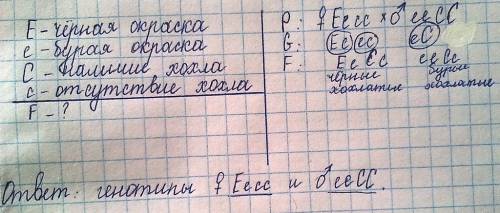 E - чёрная окраска
e - бурая окраска
C - наличие хохла
c - отсутствие хохла
F - ?
P: ♀ Eecc × ♂ eeCC
G: Ec ec eC
F: EeCc eeCc
чёрные бурые
хохлатые хохлатые
Ответ: генотипы ♀ Eecc и ♂ eeCC.